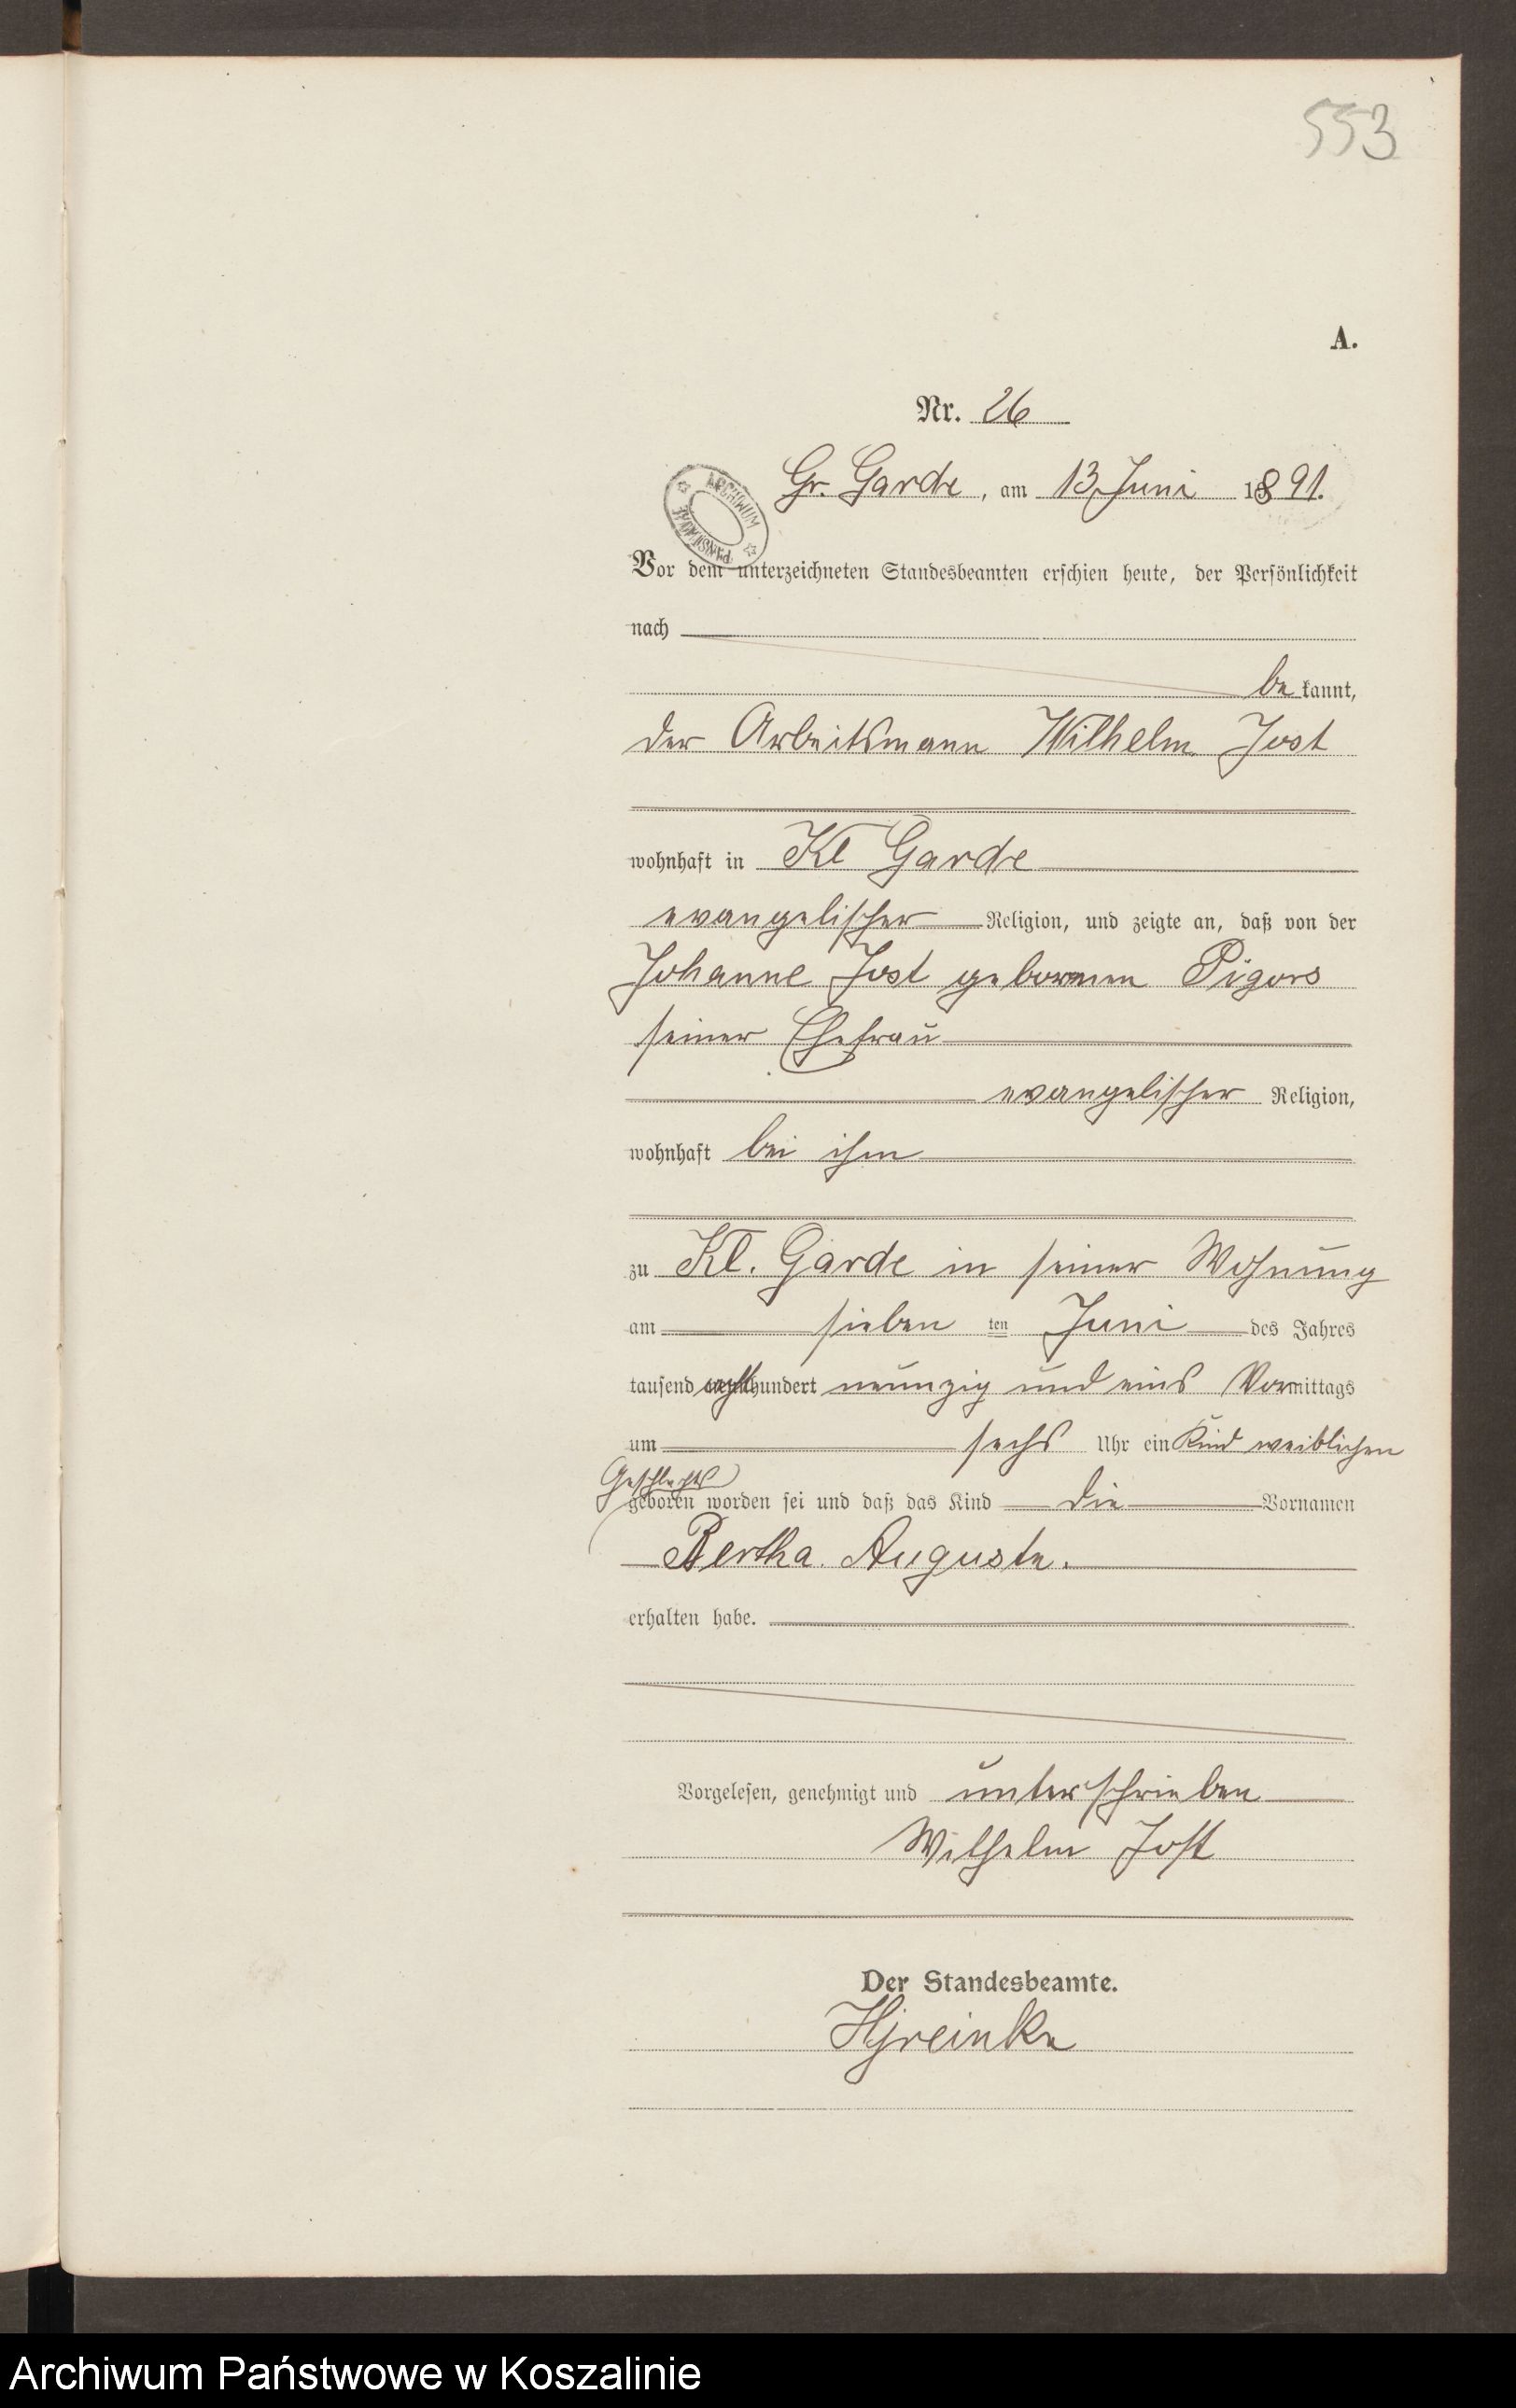 553
A.
Nr. 26
Gr. Garde, am 13 Juni 1891.
ARCHIWUM PAŃSTWOWE
Vor dem unterzeichneten Standesbeamten erschien heute, der Persönlichkeit
nach
bekannt,
der Arbeitsmann Wilhelm Jost
wohnhaft in Kl Garde
evangelischer Religion, und zeigte an, daß von der
Johanne Jost geborenen Pigors
seiner Ehefrau
evangelischer Religion,
wohnhaft bei ihm
zu Kl. Garde in seiner Wohnung
am sieben ten Juni des Jahres
tausend achthundert neunzig und eins Vormittags
um sechs Uhr ein Kind weiblichen
Geschlechts
geboren worden sei und daß das Kind die Vornamen
Bertha Auguste.
erhalten habe.
Vorgelesen, genehmigt und unterschrieben
Wilhelm Jost
Der Standesbeamte.
Archiwum Państwowe w Koszalinie